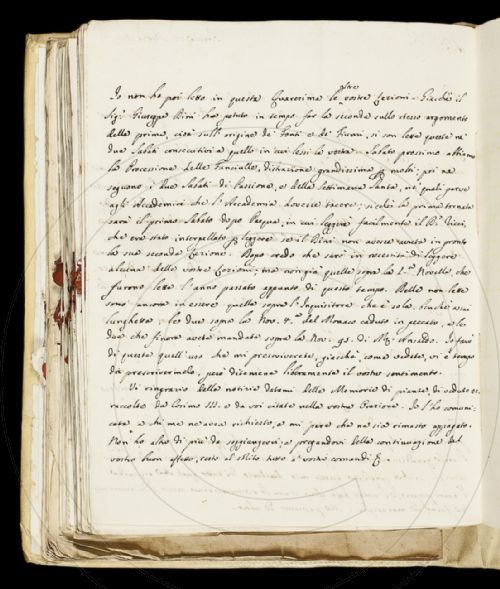 Io non ho poi letto in questa Quaresima le altre vostre Lezioni. Giacchè il
Sig.r Giuseppe Bini ha potuto in tempo far la seconda sullo stesso argomento
della prima, cioè sull'origine de' Fonti e de' Fiumi, si son lette queste ne'
due Sabati consecutivi a quello in cui lessi la vostra. Sabato prossimo abbiamo
la Processione delle Fanciulle, distrazione grandissima p molti; poi ne
seguono i due Sabati di Passione, e della Settimana Santa, ne' quali parve
agli Accademici che l'Accademia dovesse tacere; sicchè la prima tornata
sarà il primo Sabato dopo Pasqua, in cui leggerà facilmente il
che era stato interpellato p leggere se il Bini non avesse avuto in pronto
la sua seconda Lezione. Dopo credo che sarò in necessità di leggere
alcuna delle vostre Lezioni; ma non già quelle sopra la 1.a Novella, che
furono lette l'anno passato appunto di questo tempo. Delle non lette
sono ancora in essere quella sopra l'Inquisitore che è sola, benchè assai
lunghetta; le due sopra la Nov. 4.a del Monaco caduto in peccato, e le
due che finora avete mandate sopra la Nov. 95. di Ansaldo. Io farò
di queste quell'uso che mi prescriverete, giacchè, come vedete, vi è tempo
da prescrivermelo, però ditemene liberamente il vostro sentimento.
Vi ringrazio della notizia datami delle Memorie di piante, di
raccolte da Cosimo III. e da voi citate nella vostra Orazione. Io l'ho comuni=
cata a chi me ne avea richiesto, e mi pare che ne sia rimasto appagato.
Non ho altro di più da soggiungervi; e pregandovi della continuazione del
vostro buon affetto, resto al solito tutto a' vostri comandi